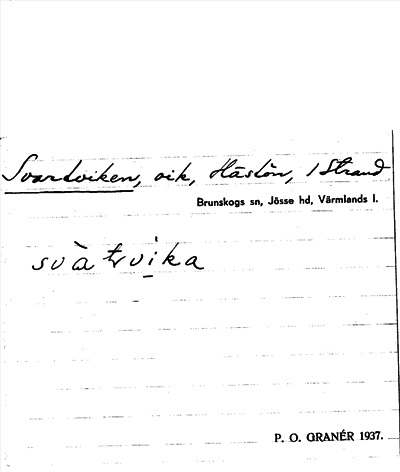 Svartviken, vik, Hästön, 1 Strand
Brunskogs sn, Jösse hd, Värmlands l.
svàtrvi̠ka
P. O. GRANÉR 1937.